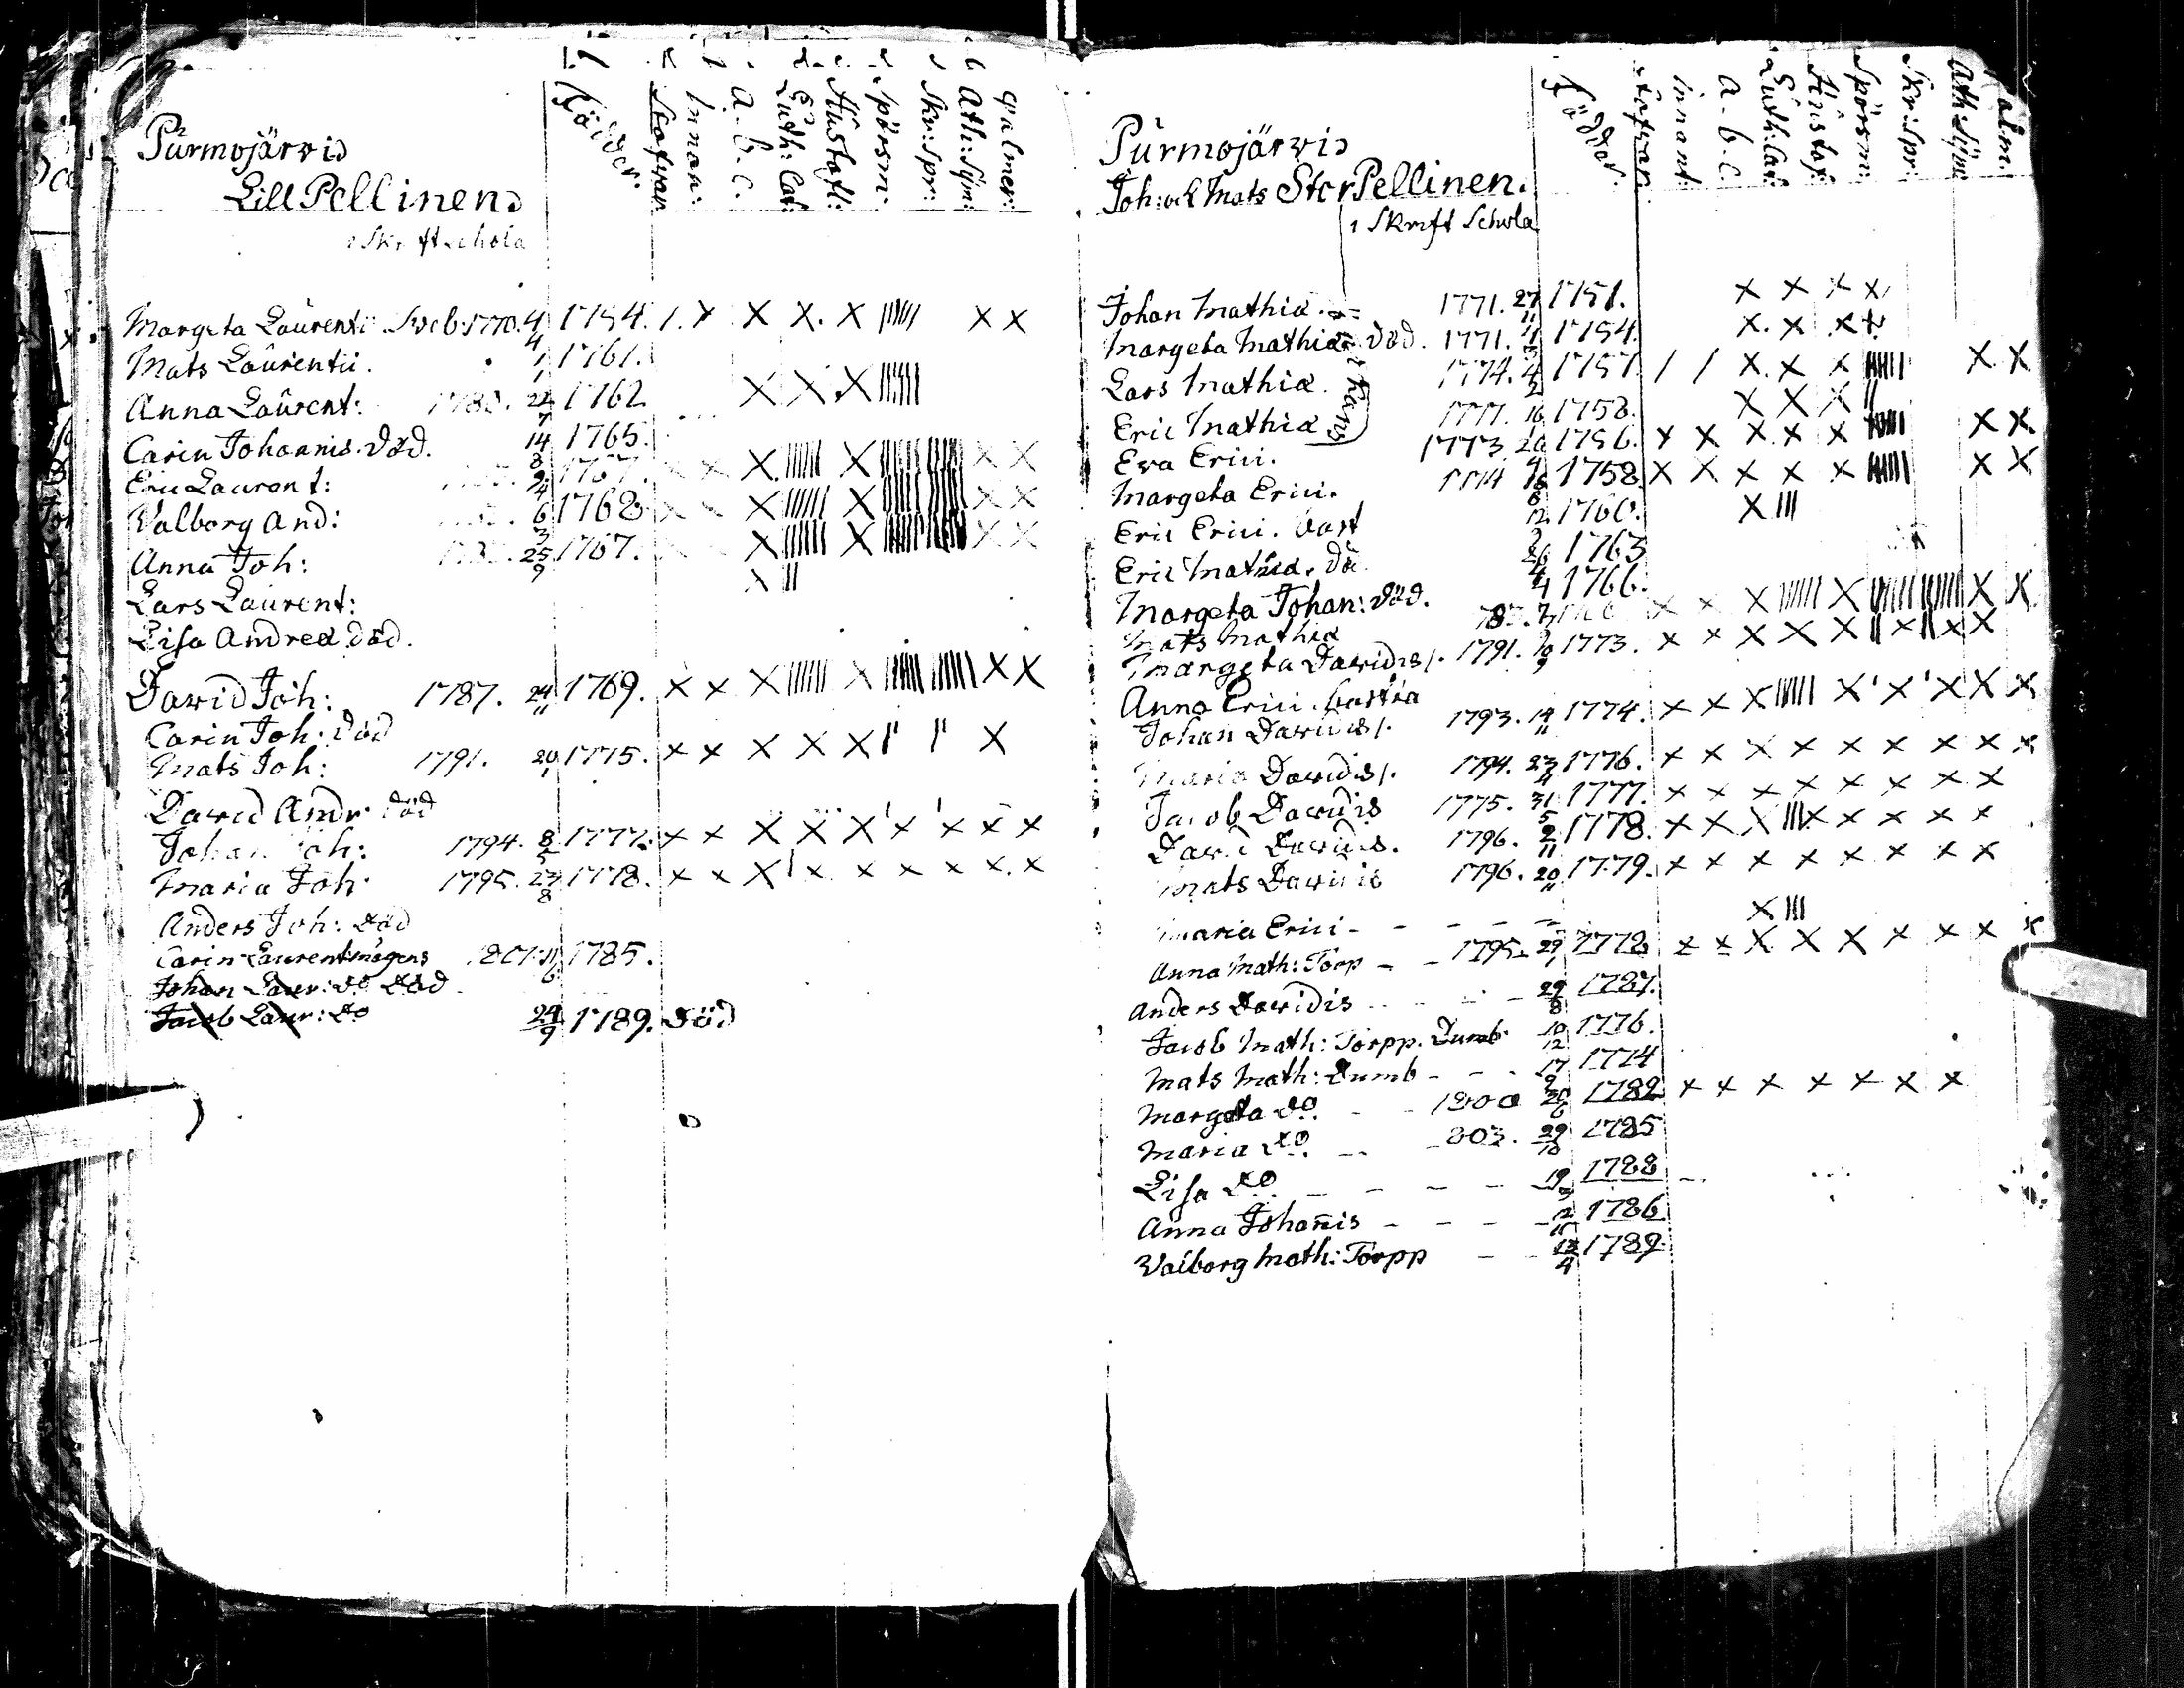 Födder.
Stafvar
Innan:
a. b. c.
Luth: Cat:
Hustafl:
Spörsm:
Skr: Spr:
Ath: Sym:
Psalmer
Purmojärvi
Lill Pellinen
i Skriftschola
Margeta Laurentii 1770. 4/4 1754. / . x x x. x |||||| x x
Mats Laurentii. 1/1 1761.
Anna Laurent: 1783. 22/7 1762 x x x ||||||
Carin Johannis. död. 14/8 1765.
Eric Laurent: 9/4 1767. x x x |||||| x x x
Valborg And: 6/3 1768 x x x |||||| x x x
Anna Joh: 25/9 1767. x x x |||||| x x x
Lars Laurent: x ||
Lisa Andreæ död.
David Joh: 1787. 24/11 1769. x x x |||||| x x x
Carin Joh: död
Mats Joh: 1791. 20/1 1775. x x x x x || || x
David Andr: död
Johan Joh: 1794. 8/5 1777. x x x x x ' x ' x x x
Maria Joh: 1795. 27/8 1778. x x x | x x x x x x
Anders Joh: död
Carin Laurent: mågens 1801. 11/6 1785.
Johan Laur: do död
Jacob Laur: do 24/9 1789. död
Födder.
Stafvar
innant:
a. b. c.
Luth: Cat:
Hustafl:
Spörsm:
Skr: Spr:
Ath: Sym:
Psalm.
Purmojärvi
Joh: och Mats Stor Pellinen.
i Skrift Schola
Johan Mathiæ. 1771. 27/11 1751. x x x x
Margeta Mathiæ död. 1771. 1754. x. x x x
Lars Mathiæ. 1774. 4/2 1757 / / x. x x |||||| x x
Eric Mathiæ 1777. 16 1758. x x x ||
Eva Erici. 1773 20 1756. x x x x x |||||| x x
Margeta Erici. 1774 1758 x x x x x |||||| x x
Eric Erici. bort 8/12 1760. x |||
Eric Mathiæ. dö 1763
Margeta Johan: död. 4/4 1766.
Mats Mathiæ x x x |||||| x x x
Margeta Davidis /. 1791. 1773. x x x x x || x || x x
Anna Erici. bortta
Johan Davidis /. 1793. 14/11 1774. x x x |||||| x ' x ' x x x
Maria Davidis /. 1794. 23/4 1776. x x x x x x x x x
Jacob Davidis 1775. 31/5 1777. x x x x x x x x
David Davidis. 1796. 2/11 1778. x x x ||| x x x x x
Mats Davidis 1796. 20/11 1779. x x x x x x x x
Maria Erici x |||
Anna Math: Torp 1795. 29/1 1778 x x x x x x x x x
Anders Davidis 29/8 1787.
Jacob Math: Torpp. Dumb 10/12 1776.
Mats Math: Dumb 17/9 1774
Margeta do. 1800 20/6 1782 x x x x x x x
Maria do. 803. 29/10 1785
Lisa do. 19 1788
Anna Johanis 2/11 1786
Valborg Math: Torpp 13/4 1789